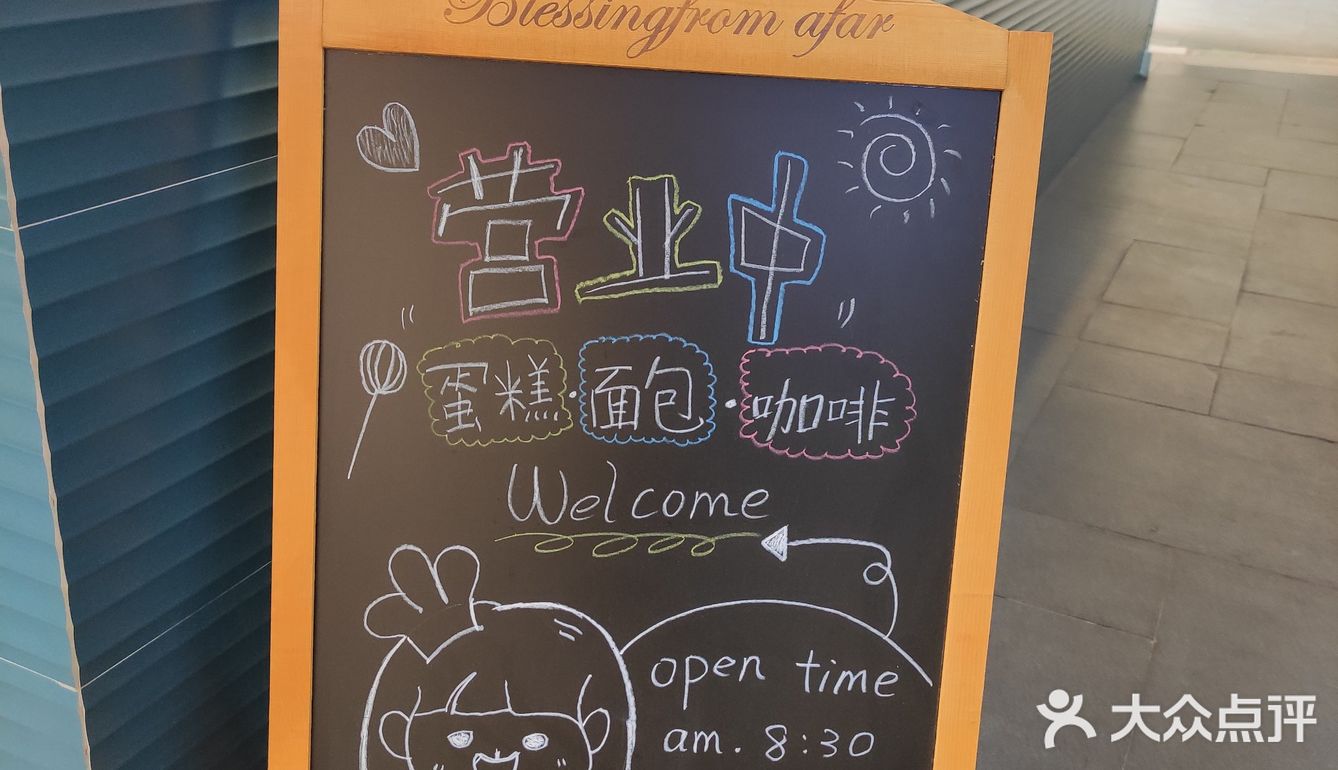 Blessingfrom afar
营业中
蛋糕·面包·咖啡
Welcome
open time
am. 8:30
大众点评